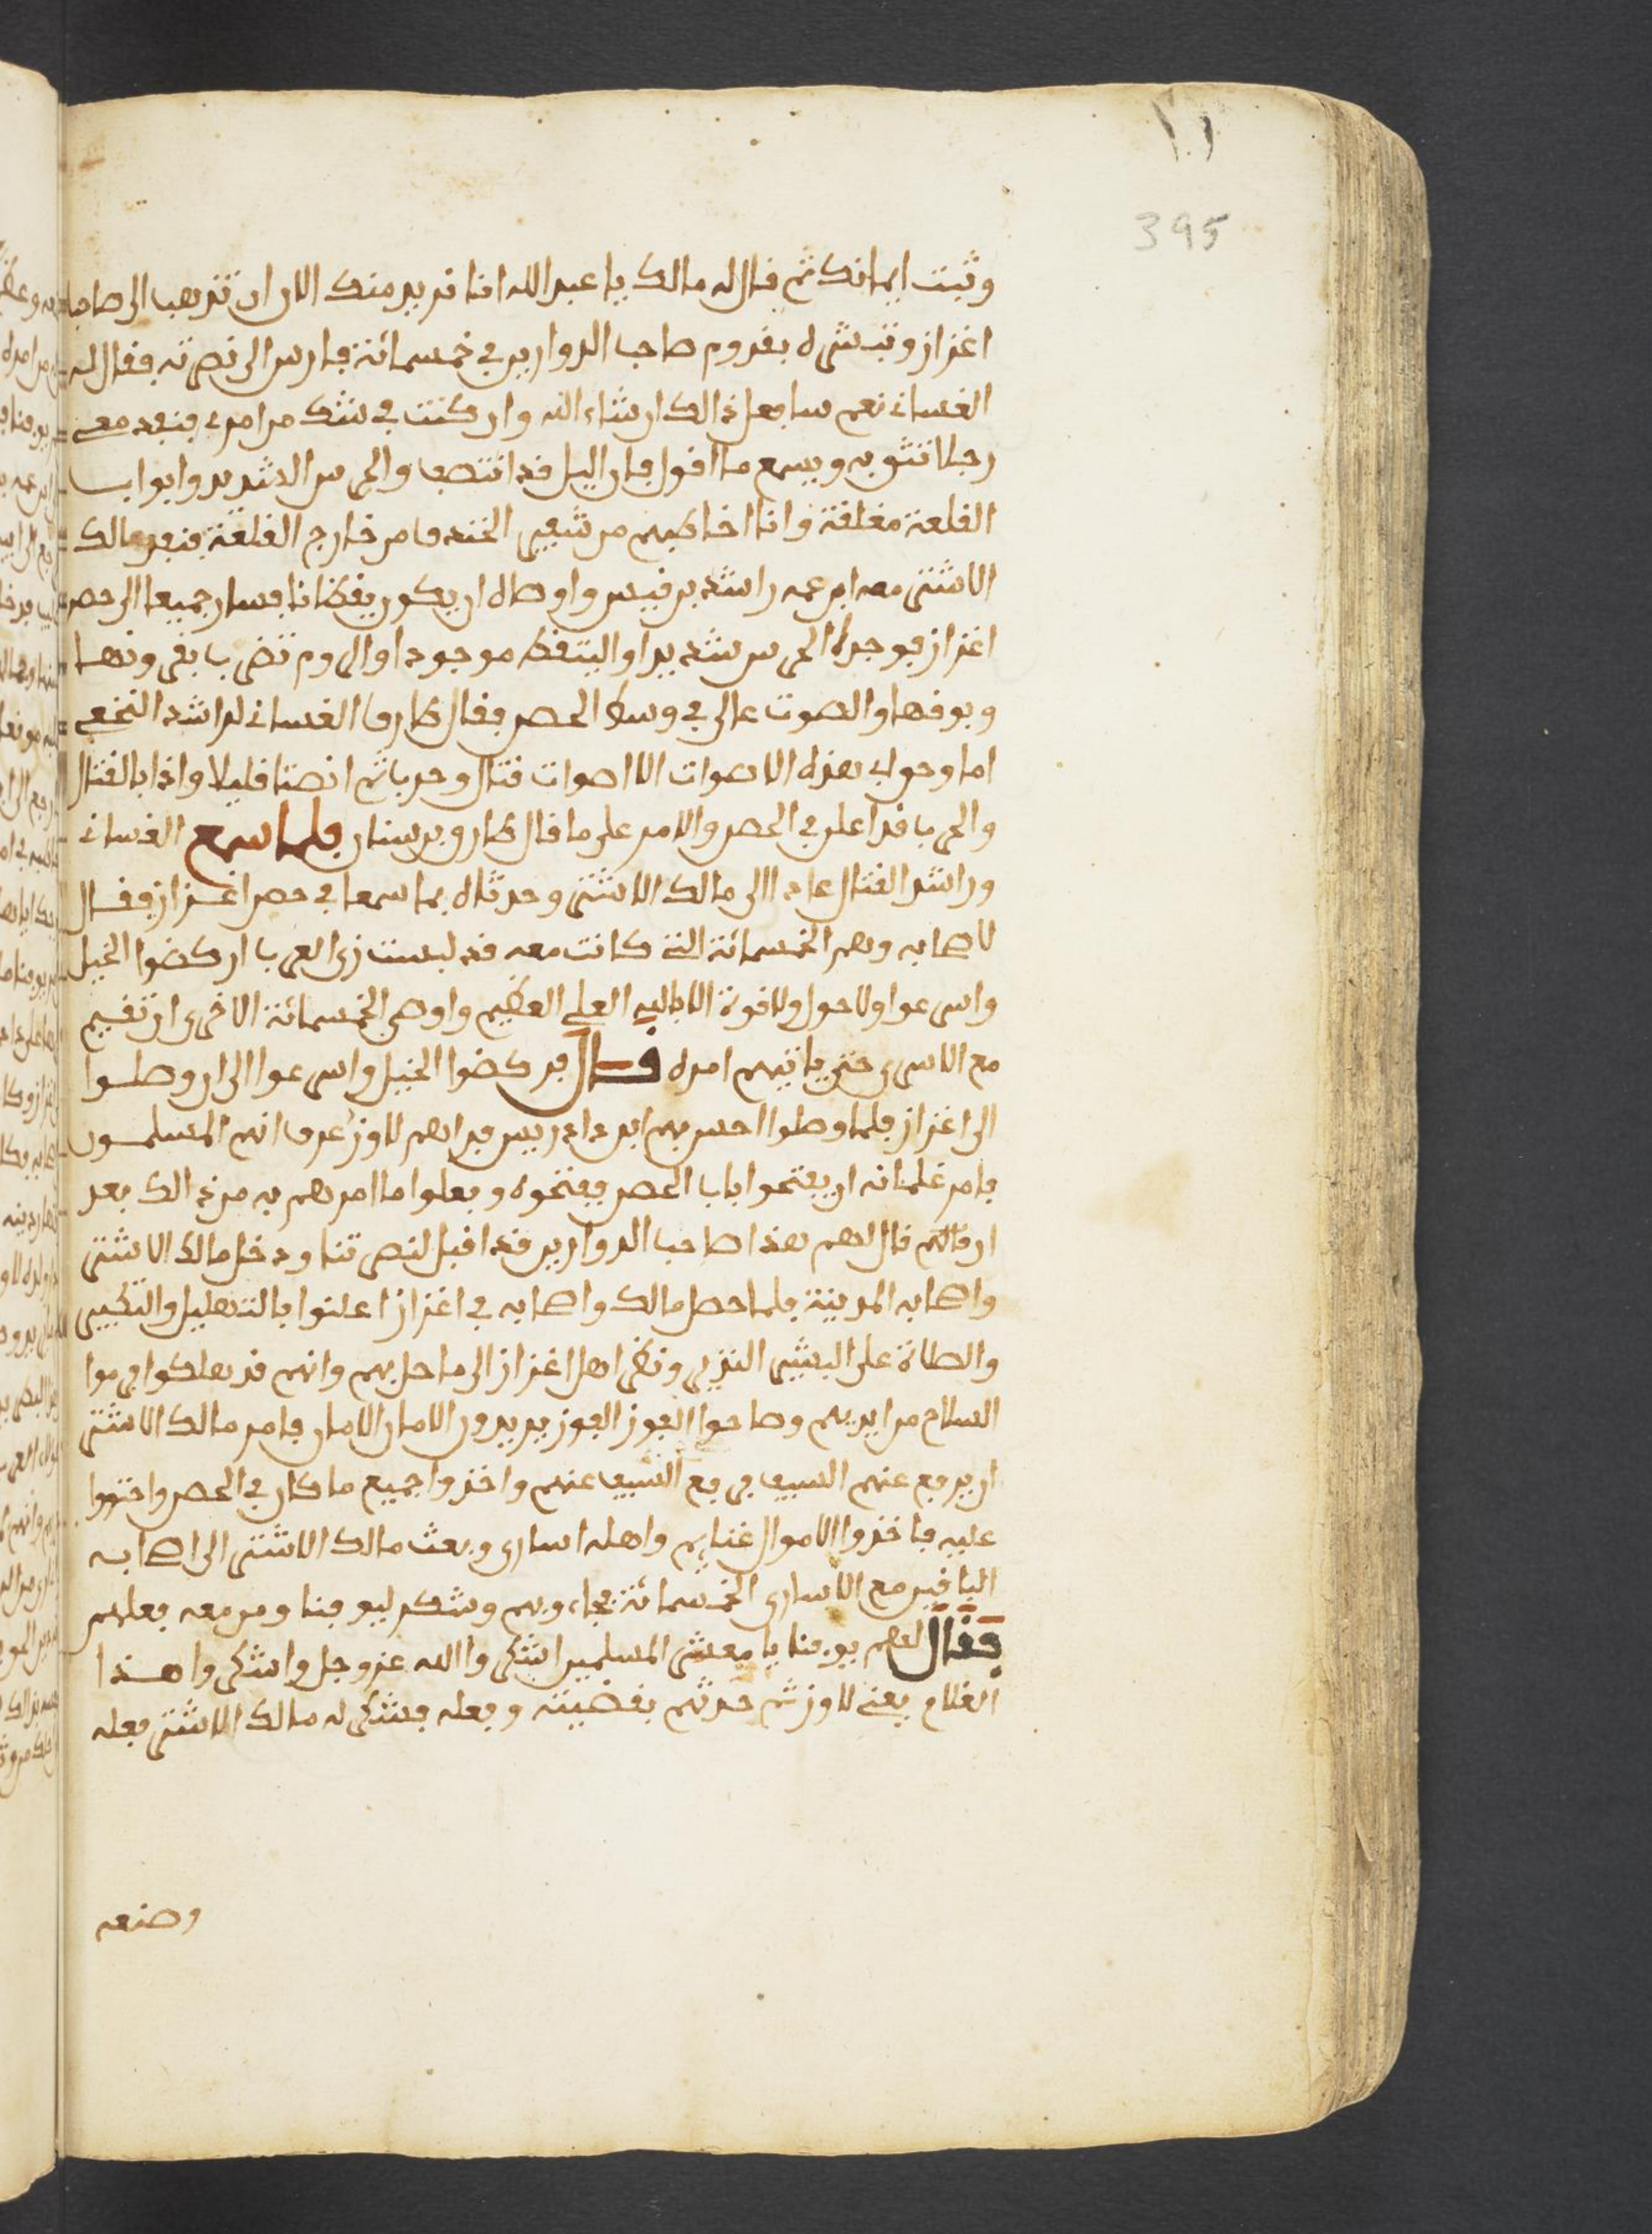 395
وثبت ايمانك ثم قال له مالك يا عبد الله انا نريد منك الان ان تذهب الى صاحب
اعزاز وتبشره بقدوم صاحب الروارير في خمسمائة فارس الى نصرته فقال له
الغساني نعم سافعل ذالك ان شاء الله وان كنت في شك من امري فنفد معي
رجلا تثق به ويسمع ما اقول فان اليل قد انتصب والحرس الشديد وابواب
القلعة مغلقة وانا اخاطبهم من شفير الخندق من خارج القلعة فنفد مالك
الاشتر معه ابن عمه راشد بن قيس واوصاه ان يكون يقظانا فسار جميعا الى حصن
اعزاز فوجدا الحرس شديدا والتيقظ موجودا والروم تضرب بقرونها
وبوقها والصوت عالي في وسط الحصن فقال طارق الغساني لراشد النخعي
اما وحولي هذه الاصوات الا اصوات قتال وحرب ثم انصتا قليلا واذا بالقتال
والحرب قد اعلن في الحصن والامر على ما قال طارق بن سنان فلما سمع الغساني
وراشد القتال عادا الى مالك الاشتر وحدثاه بما سمعا في حصن اعزاز فقال
لاصحابه وهم الخمسمائة التي كانت معه قد لبست زي العرب اركضوا الخيل
واسرعوا ولا حول ولا قوة الا بالله العلي العظيم واوصى الخمسمائة الاخرى ان تقيم
مع الاسرى حتى ياتيهم امره قال فركضوا الخيل واسرعوا الى ان وصلوا
الى اعزاز فلما وصلوا احس بهم ابن دادريس فراهم لاوز عرف انهم المسلمون
فامر غلمانه ان يفتحوا باب الحصن ففتحوه وفعلوا ما امرهم به من ذالك بعد
ان قال لهم هذا صاحب الروارير قد اقبل لنصرتنا ودخل مالك الاشتر
واصحابه المدينة فلما حصل مالك واصحابه في اعزاز اعلنوا بالتهليل والتكبير
والصلاة على البشير النذير ونظر اهل اعزاز الى ما حل بهم وانهم قد هلكوا فرموا
السلاح من ايديهم وصاحوا الغوز الغوز يريدون الامان الامان فامر مالك الاشتر
ان يرفع عنهم السيف فرفع السيف عنهم واخذوا جميع ما كان في الحصن واحتووا
عليه فاخذوا الاموال غنايم واهله اسارى وبعث مالك الاشتر الى اصحابه
الباقين مع الاسارى الخمسمائة فجاءو بهم وشكر ليوقنا ومن معه فعلهم
فقال لهم يوقنا يا معشر المسلمين اشكروا الله عز وجل واشكروا هذا
الغلام يعني لاوز ثم حدثهم بقضيته وفعله فشكر له مالك الاشتر فعله
وصنعه